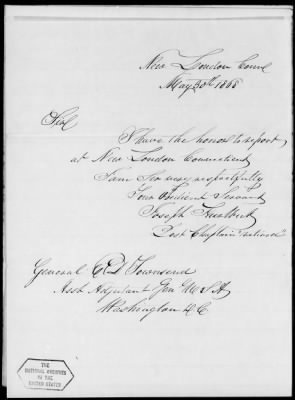 New London Conn
May 30th 1868
Sir
I have the honor to report
at New London Connecticut
I am Sir very respectfully
Your Obedient Servant
Joseph
Post Chaplain
General E D Townsend
Asst Adjutant Gen U S A
Washington D.C.
THE
NATIONAL ARCHIVES
OF THE
UNITED STATES